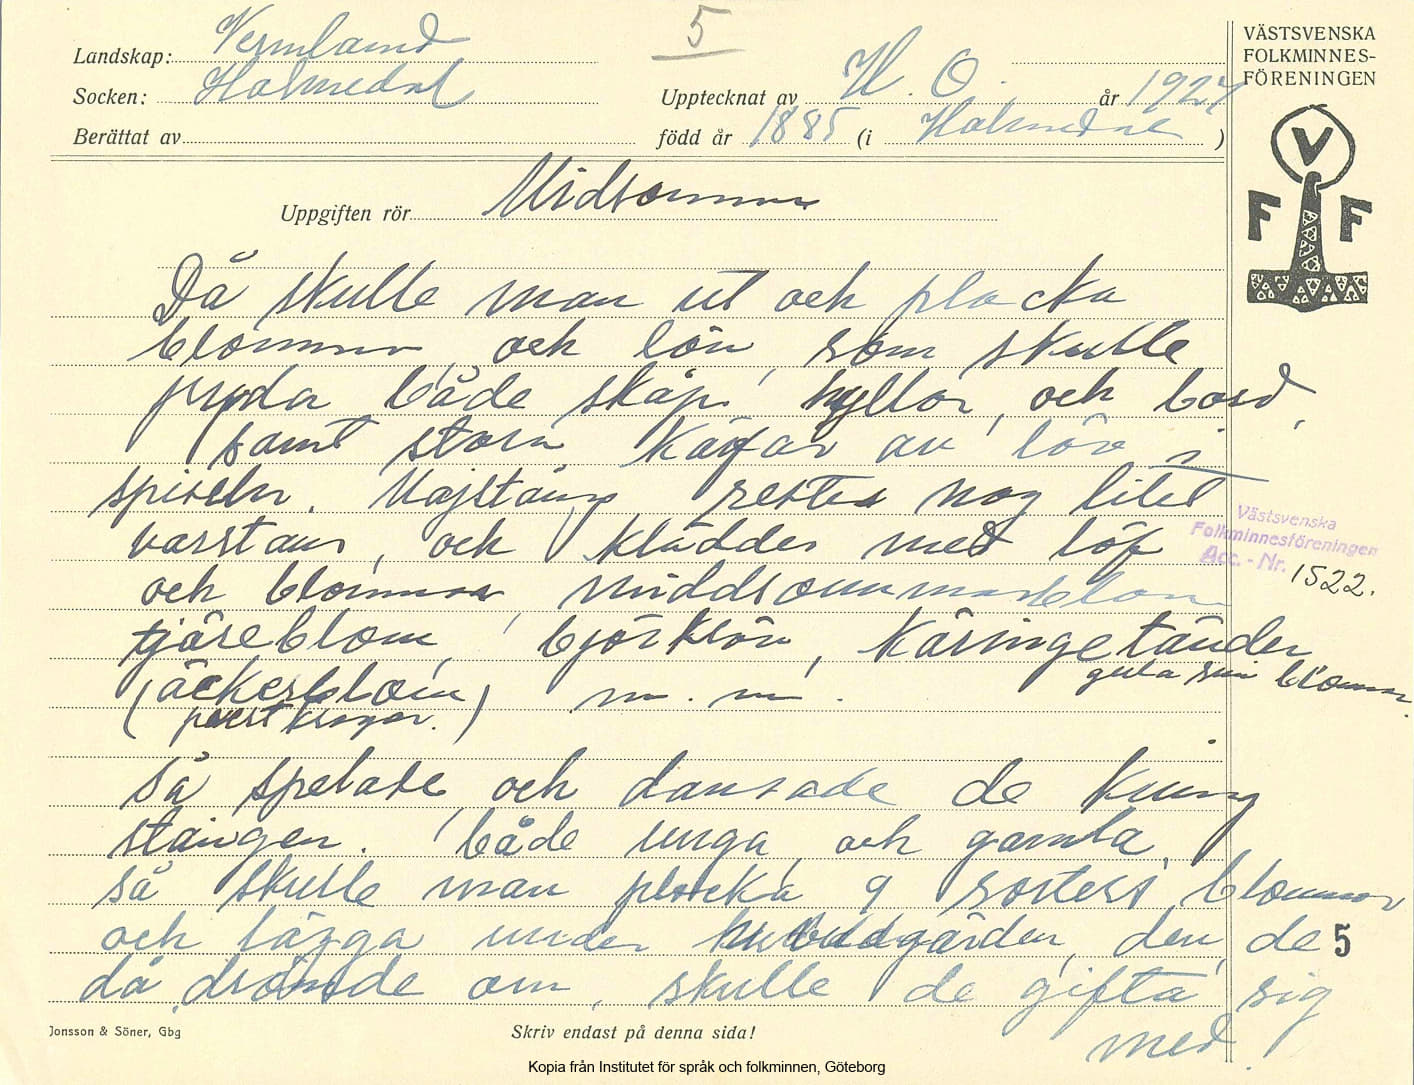 5
Landskap: Vermland
Socken: Holmedal
Upptecknat av H. O. år 1927
Berättat av
född år 1885 (i Holmedal)
VÄSTSVENSKA
FOLKMINNES-
FÖRENINGEN
V
F F
Uppgiften rör Midsommar
Då skulle man ut och plocka
blommor och löv, som skulle
pryda både skåp, hyllor, och bord,
samt stora kärvar av löv i
spiseln. Majstång restes nog litet
varstans, och kläddes med löf
och blommor, middsommarblom
tjäreblom, björklöv, käringetänder
gula små blommor.
(åckerblom) m. m.
prestkragar.
Så spelade och dansade de kring
stången. både unga och gamla,
så skulle man plocka 9 sorters blommor
och lägga under huvudgärden, den de
då drömde om, skulle de gifta sig
med.
Västsvenska
Folkminnesföreningen
Acc. - Nr. 1522.
5
Jonsson & Söner, Gbg
Skriv endast på denna sida!
Kopia från Institutet för språk och folkminnen, Göteborg